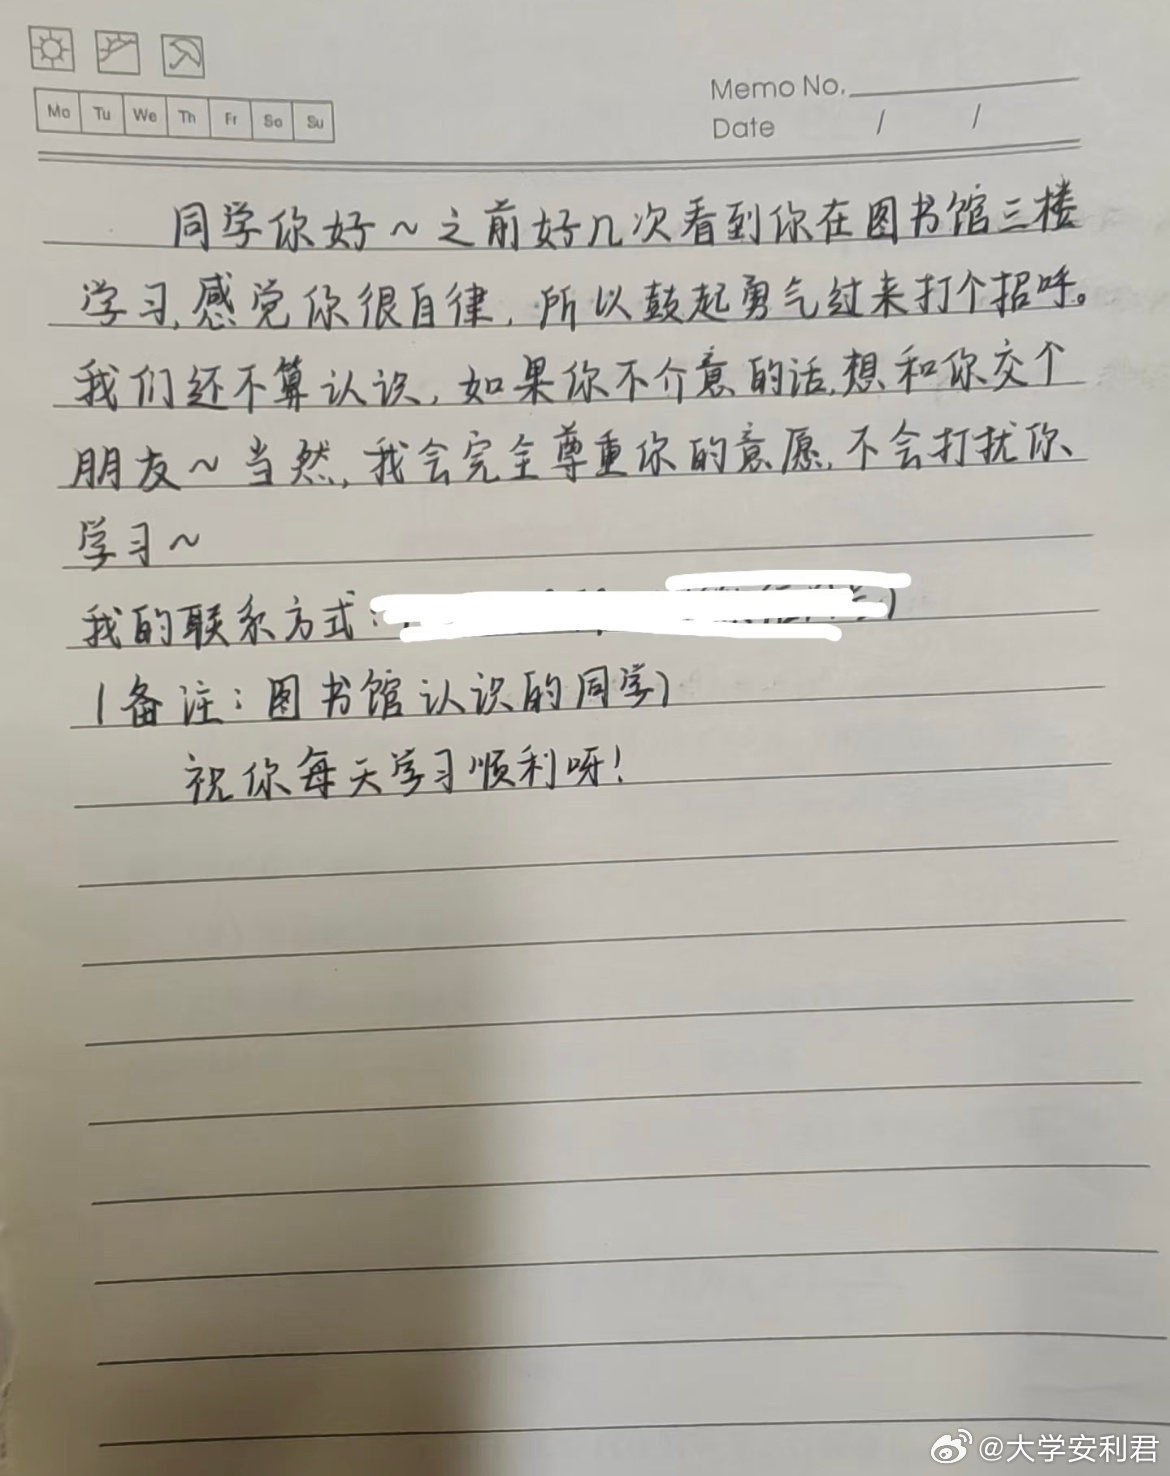 Mo Tu We Th Fr Sa Su
Memo No.
Date / /
同学你好~之前好几次看到你在图书馆三楼
学习,感觉你很自律,所以鼓起勇气过来打个招呼。
我们还不算认识,如果你不介意的话,想和你交个
朋友~当然,我会完全尊重你的意愿,不会打扰你
学习~
我的联系方式:
(备注:图书馆认识的同学)
祝你每天学习顺利呀!
@大学安利君